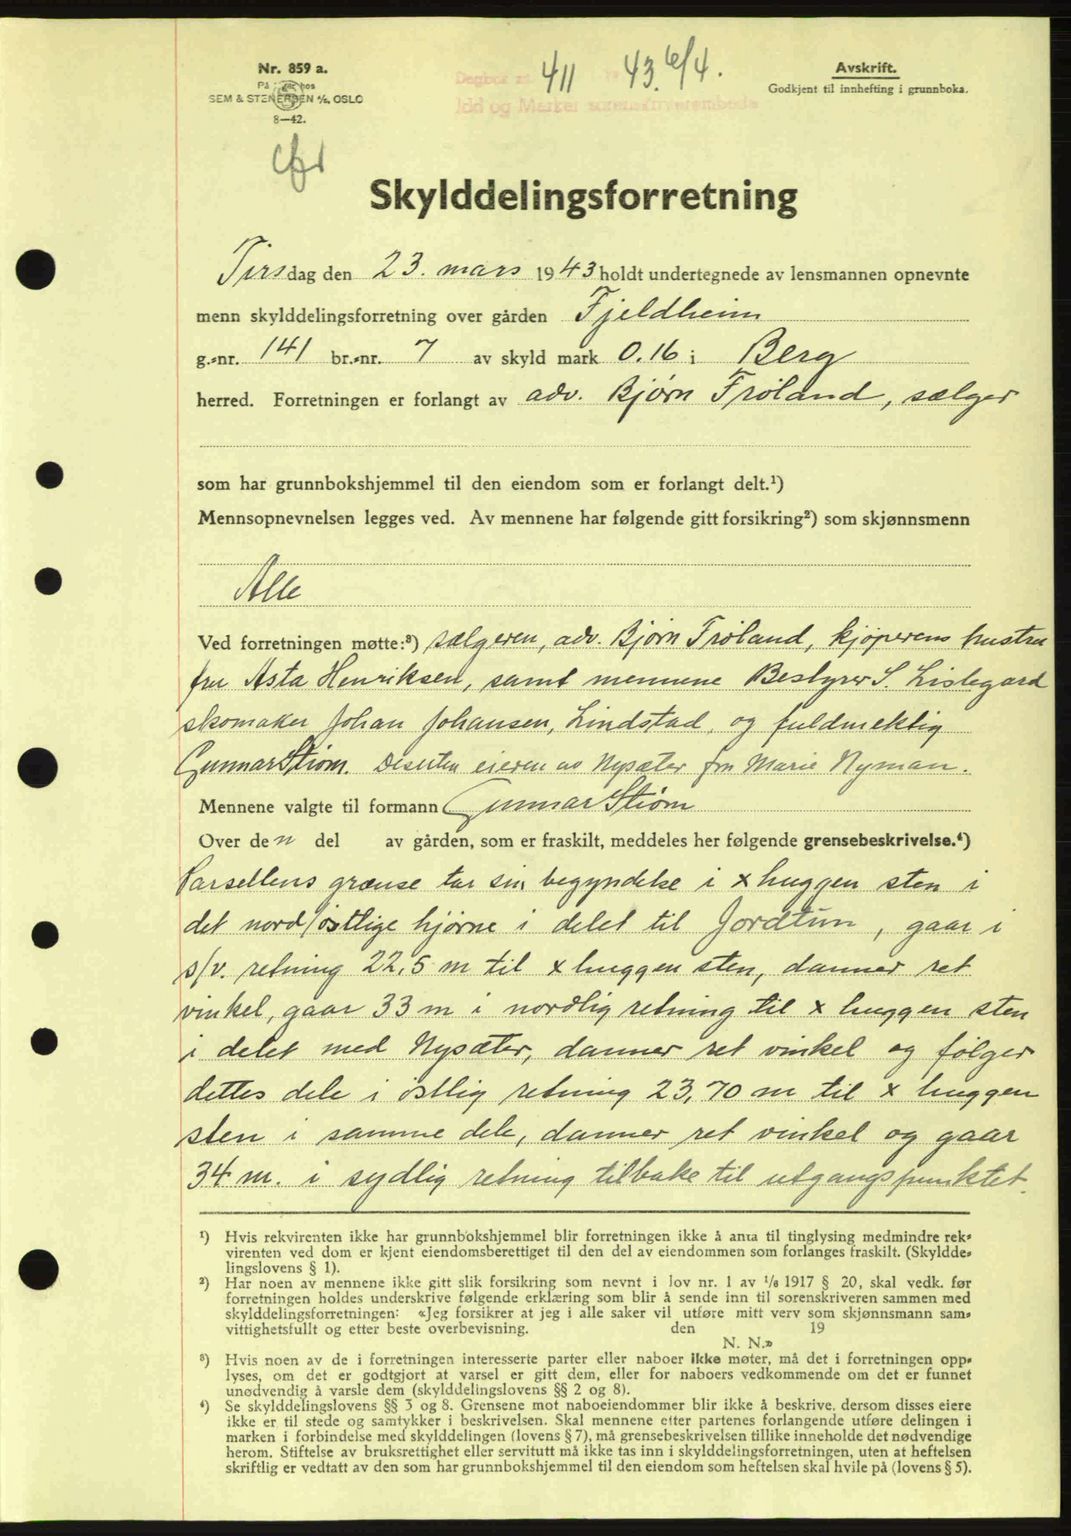 Nr. 859 a.
På lager hos
SEM & STENERSEN A/S, OSLO
8—42.
Dagbok nr. 411 1943. 6/4.
Idd og Marker sorenskriverembede
Avskrift.
Godkjent til innhefting i grunnboka.
Skylddelingsforretning
Tirsdag den 23. mars 1943 holdt undertegnede av lensmannen opnevnte
menn skylddelingsforretning over gården Fjeldheim
g.-nr. 141 br.-nr. 7 av skyld mark 0.16 i Berg
herred. Forretningen er forlangt av adv. Bjørn Frøland, sælger
som har grunnbokshjemmel til den eiendom som er forlangt delt.¹)
Mennsopnevnelsen legges ved. Av mennene har følgende gitt forsikring²) som skjønnsmenn
Alle
Ved forretningen møtte:³) sælgeren, adv. Bjørn Frøland, kjøperens hustru
fru Asta Henriksen, samt mennene Bestyrer S. Lislegard
skomaker Johan Johansen, Lindstad, og fuldmektig
Gunnar Strøm. Desuten eieren av Nysæter fru Marie Nyman.
Mennene valgte til formann Gunnar Strøm
Over den del av gården, som er fraskilt, meddeles her følgende grensebeskrivelse.⁴)
Parsellens grænse tar sin begyndelse i x huggen sten i
det nord/østlige hjørne i delet til Jordtun, gaar i
s/v. retning 22,5 m til x huggen sten, danner ret
vinkel, gaar 33 m i nordlig retning til x huggen sten
i delet med Nysæter, danner ret vinkel og følger
dettes dele i østlig retning 23,70 m til x huggen
sten i samme dele, danner ret vinkel og gaar
34 m. i sydlig retning tilbake til utgangspunktet.
¹) Hvis rekvirenten ikke har grunnbokshjemmel blir forretningen ikke å anta til tinglysing medmindre rek-
virenten ved dom er kjent eiendomsberettiget til den del av eiendommen som forlanges fraskilt. (Skyldde-
lingslovens § 1).
²) Har noen av mennene ikke gitt slik forsikring som nevnt i lov nr. 1 av ¹/₆ 1917 § 20, skal vedk. før
forretningen holdes underskrive følgende erklæring som blir å sende inn til sorenskriveren sammen med
skylddelingsforretningen: «Jeg forsikrer at jeg i alle saker vil utføre mitt verv som skjønnsmann sam-
vittighetsfullt og etter beste overbevisning. den 19
N. N.»
³) Hvis noen av de i forretningen interesserte parter eller naboer ikke møter, må det i forretningen opp-
lyses, om det er godtgjort at varsel er gitt dem, eller for naboers vedkommende om det er funnet
unødvendig å varsle dem (skylddelingslovens §§ 2 og 8).
⁴) Se skylddelingslovens §§ 3 og 8. Grensene mot naboeiendommer blir ikke å beskrive, dersom disses eiere
ikke er til stede og samtykker i beskrivelsen. Skal mennene etter partenes forlangende utføre delingen i
marken i forbindelse med skylddelingen (lovens § 7), må grensebeskrivelsen tillike inneholde det nødvendige
herom. Stiftelse av bruksrettighet eller servitutt må ikke tas inn i skylddelingsforretningen, uten at heftelsen
skriftlig er vedtatt av den som har grunnbokshjemmel til den eiendom som heftelsen skal hvile på (lovens § 5).